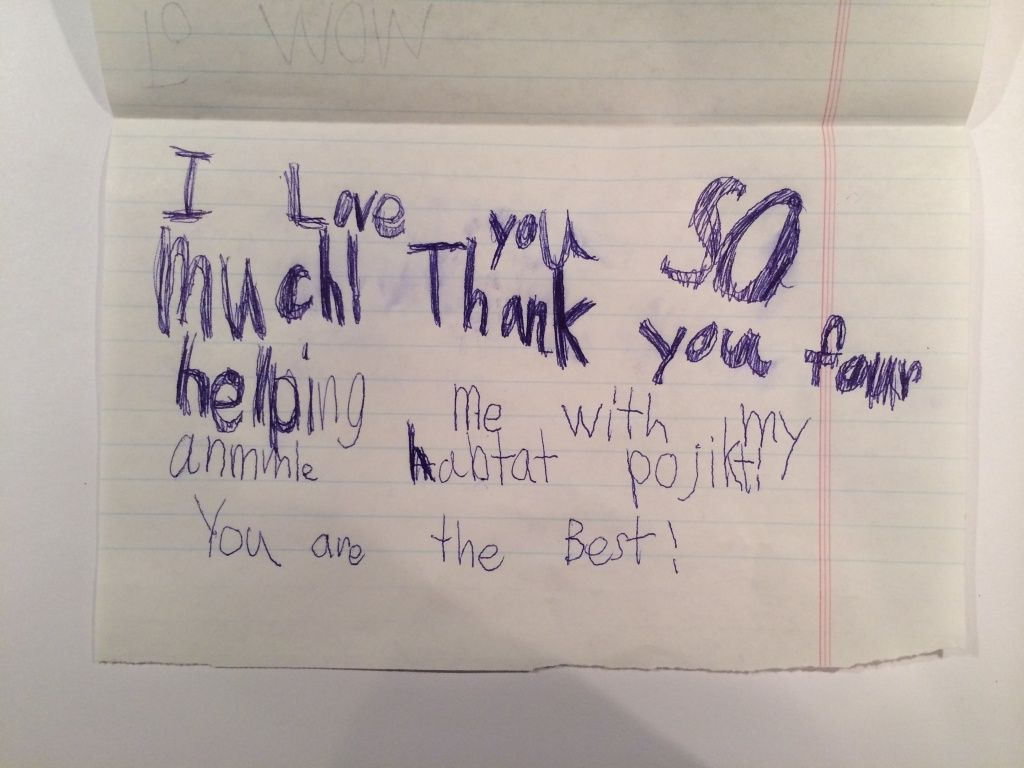 To WOW
I Love you SO
much! Thank you four
helping me with my
anmhle habtat pojikt!
You are the Best!